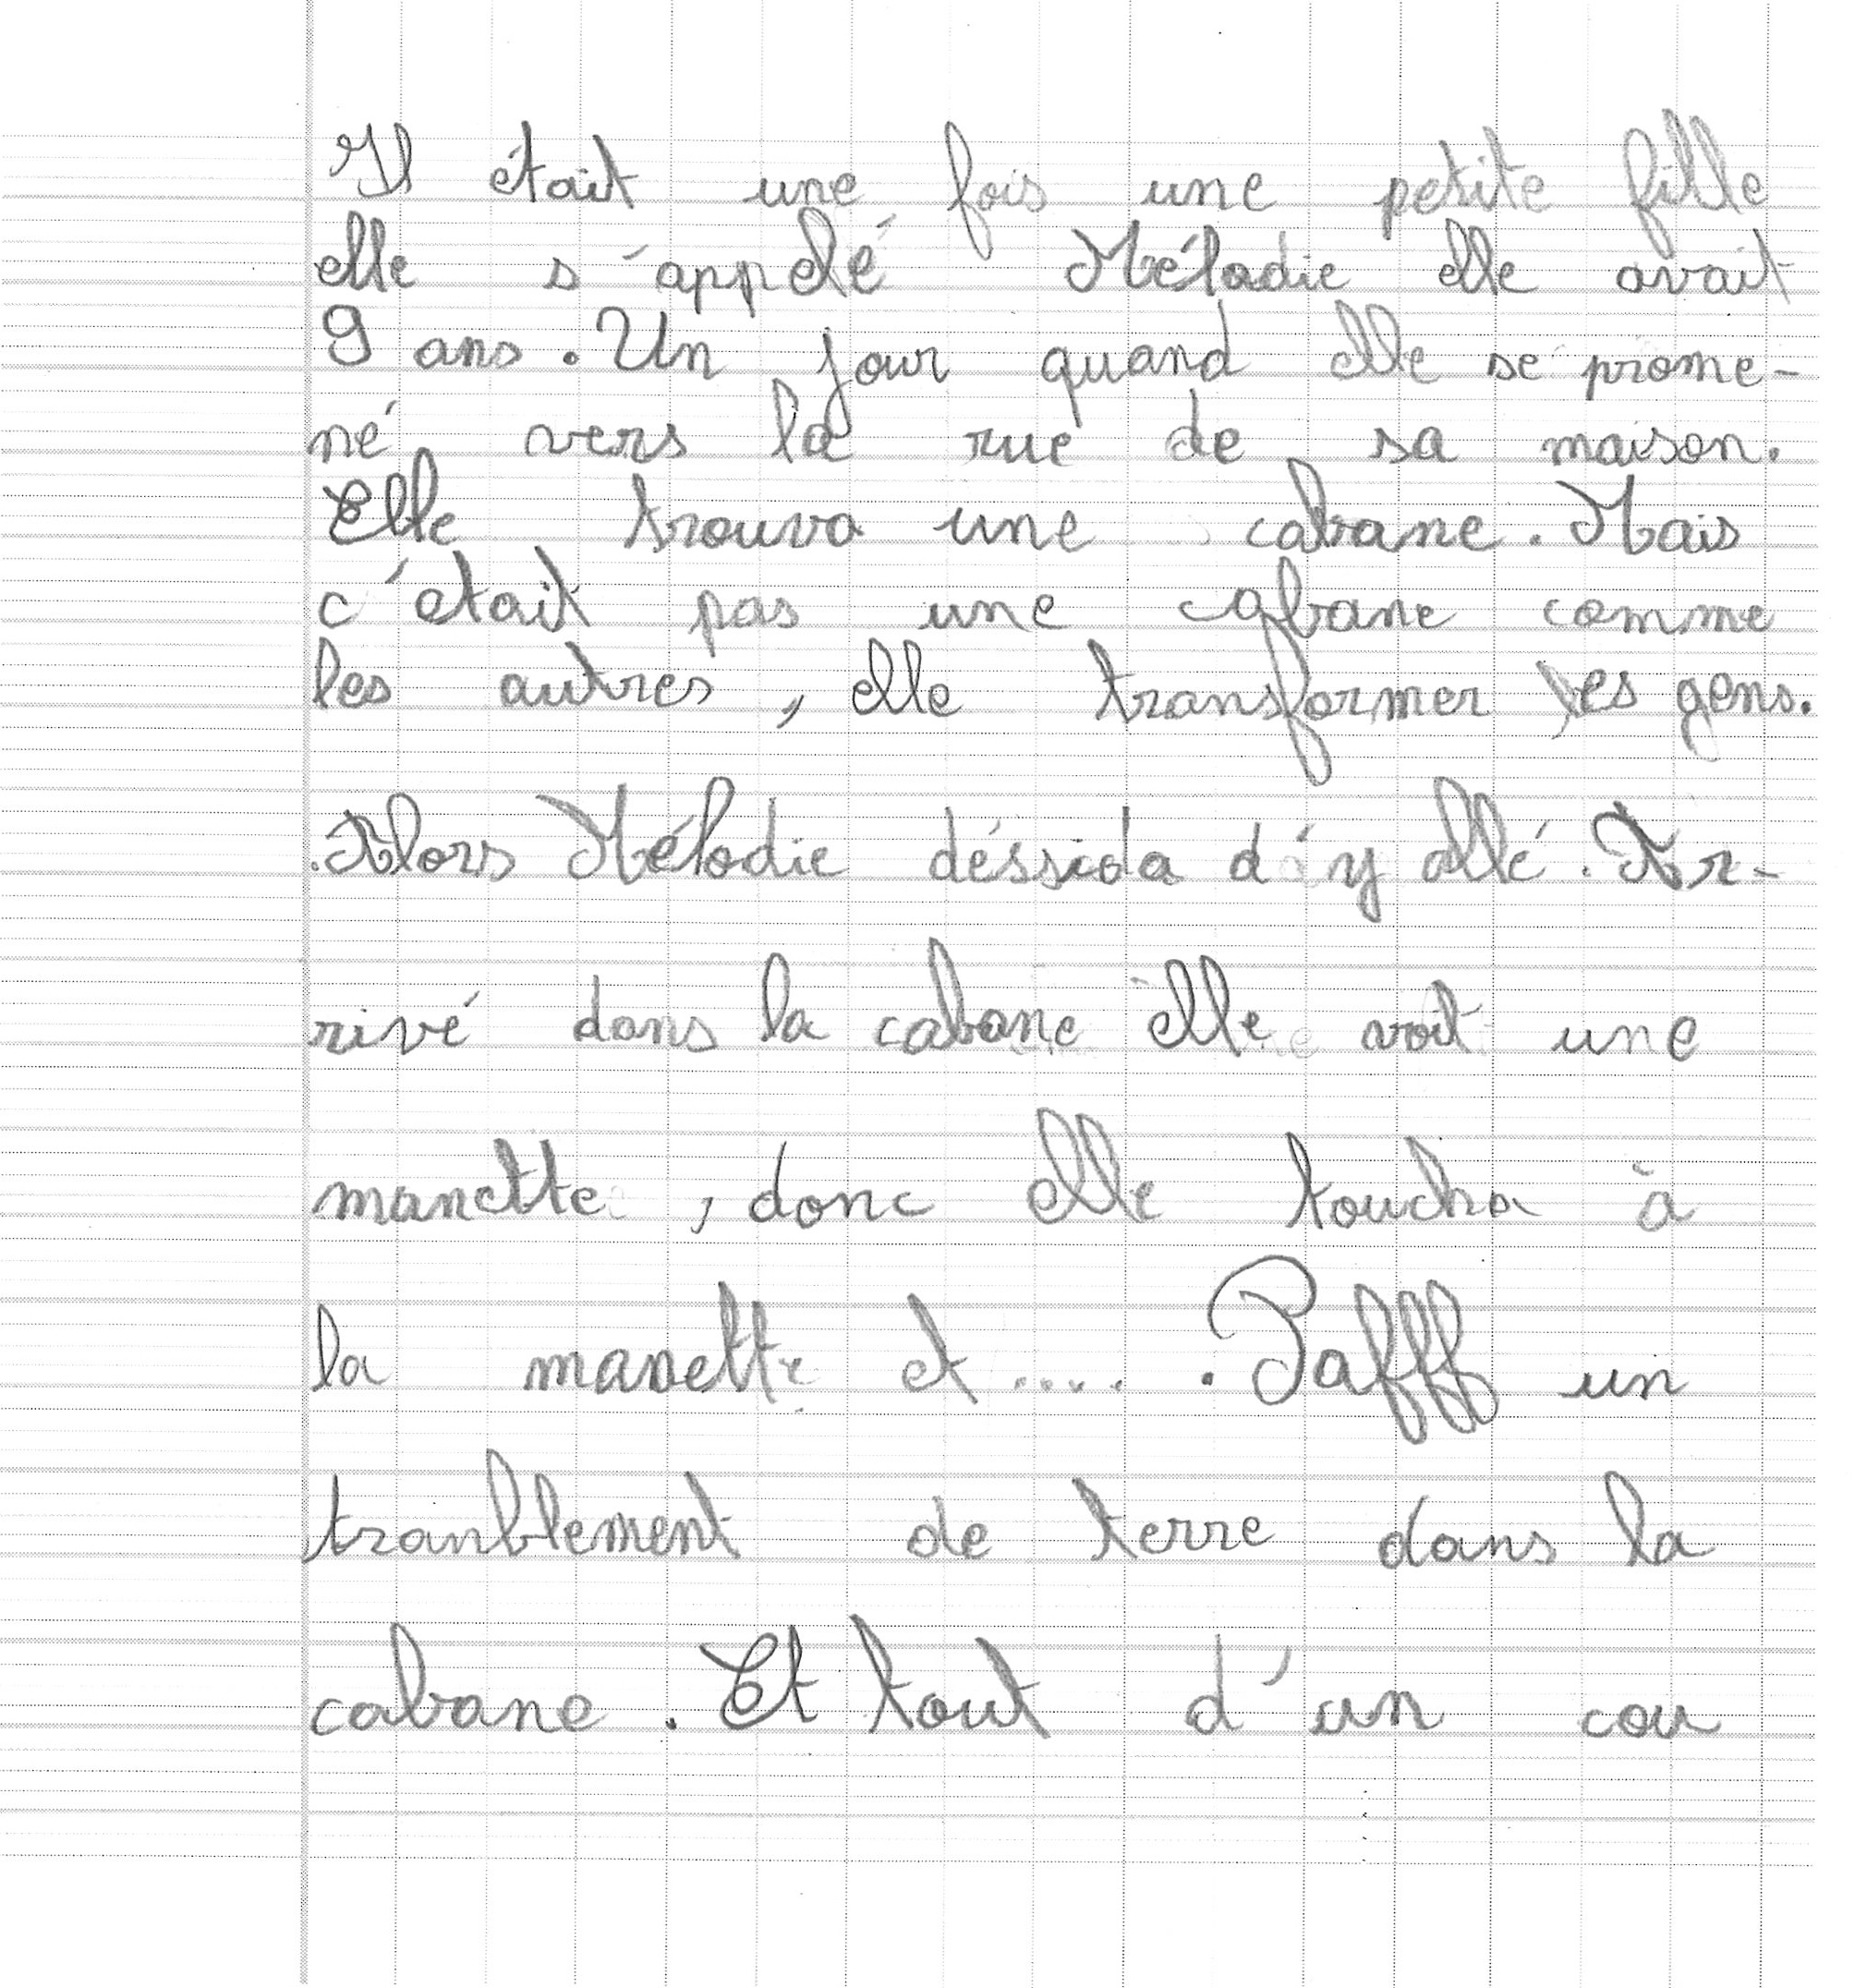 Il était une fois une petite fille
elle s'appelé Mélodie elle avait
9 ans. Un jour quand elle se prome-
né vers la rue de sa maison.
Elle trouva une cabane. Mais
c'était pas une cabane comme
les autres, elle transformer les gens.
Alors Mélodie déssida d'y allé. Ar-
rivé dans la cabane elle voit une
manette, donc elle toucha à
la manette et ..... Pafff un
tranblement de terre dans la
cabane. Et tout d'un cou